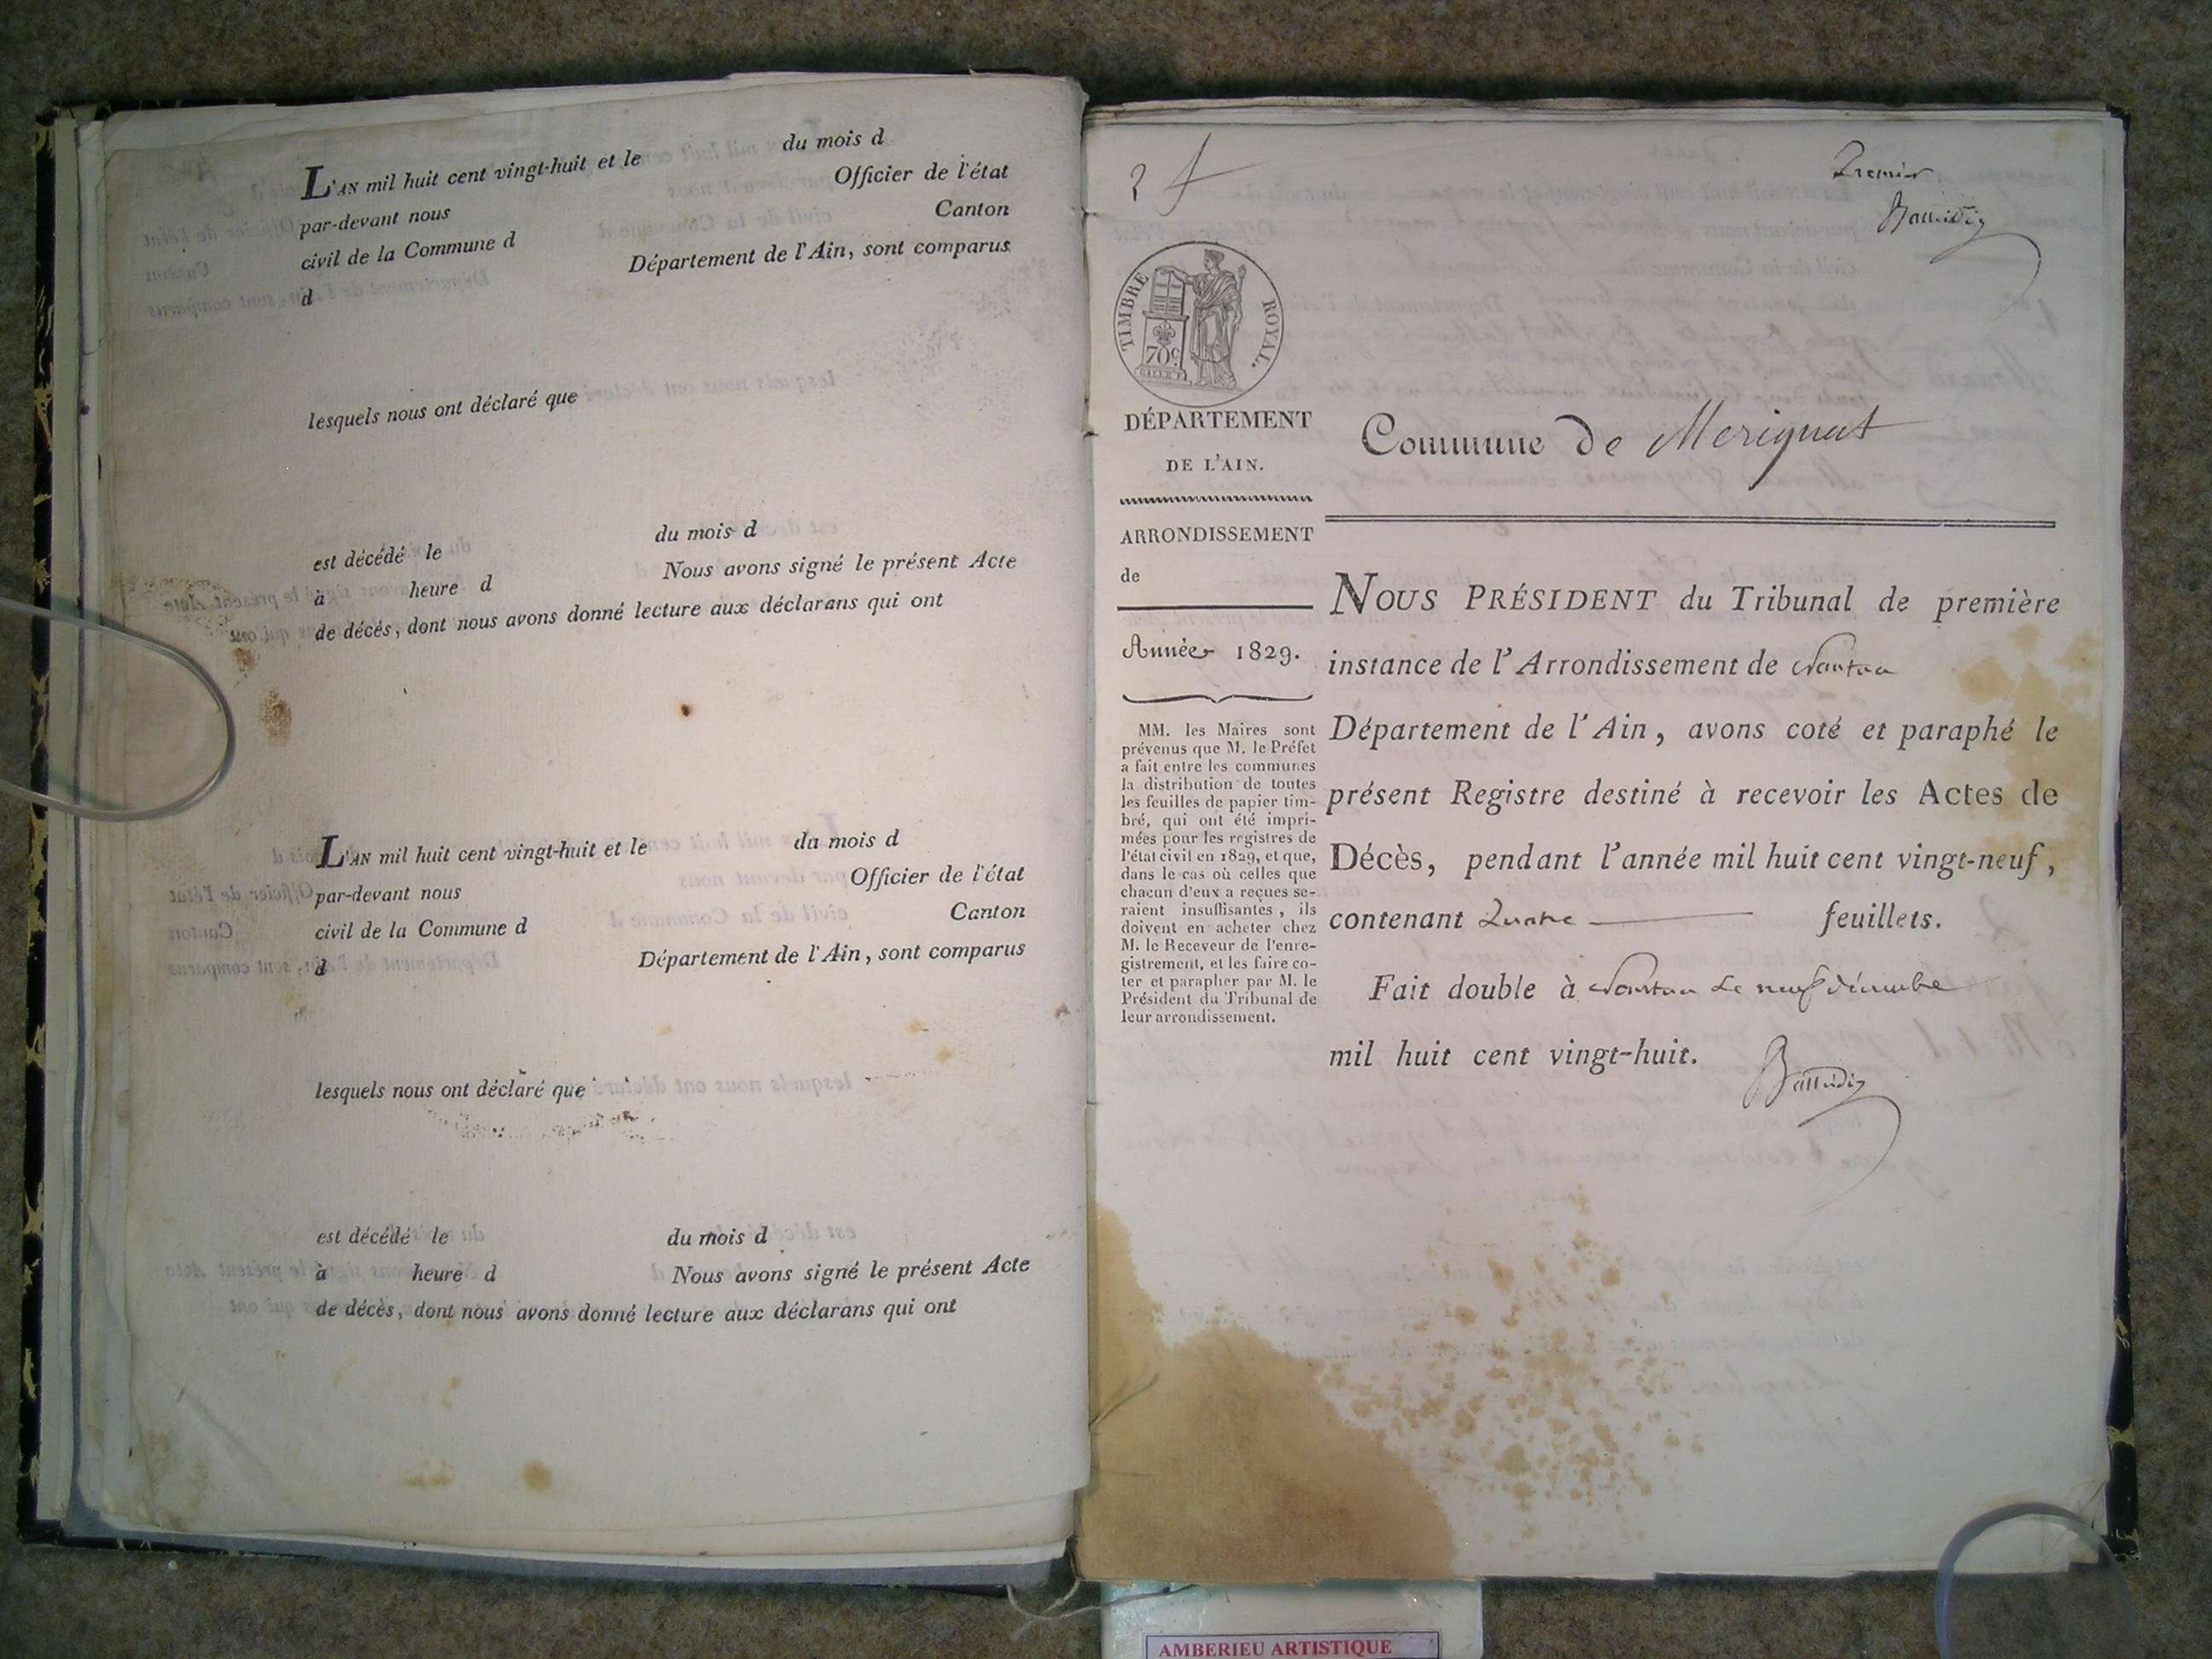 L'AN mil huit cent vingt-huit et le du mois d
par-devant nous Officier de l'état
civil de la Commune d Canton
d Département de l'Ain, sont comparus
lesquels nous ont déclaré que
est décédé le du mois d
à heure d Nous avons signé le présent Acte
de décès, dont nous avons donné lecture aux déclarans qui ont
L'AN mil huit cent vingt-huit et le du mois d
par-devant nous Officier de l'état
civil de la Commune d Canton
d Département de l'Ain, sont comparus
lesquels nous ont déclaré que
est décédé le du mois d
à heure d Nous avons signé le présent Acte
de décès, dont nous avons donné lecture aux déclarans qui ont
Premier
TIMBRE ROYAL.
70c
DÉPARTEMENT
DE L'AIN.
ARRONDISSEMENT
de
Année 1829.
MM. les Maires sont
prévenus que M. le Préfet
a fait entre les communes
la distribution de toutes
les feuilles de papier tim-
bré, qui ont été impri-
mées pour les registres de
l'état civil en 1829, et que,
dans le cas où celles que
chacun d'eux a reçues se-
raient insuffisantes, ils
doivent en acheter chez
M. le Receveur de l'enre-
gistrement, et les faire co-
ter et parapher par M. le
Président du Tribunal de
leur arrondissement.
Commune de Merignat
NOUS PRÉSIDENT du Tribunal de première
instance de l'Arrondissement de Nantua
Département de l'Ain, avons coté et paraphé le
présent Registre destiné à recevoir les Actes de
Décès, pendant l'année mil huit cent vingt-neuf,
contenant Quatre feuillets.
Fait double à Nantua Le neuf décembre
mil huit cent vingt-huit.
AMBERIEU ARTISTIQUE